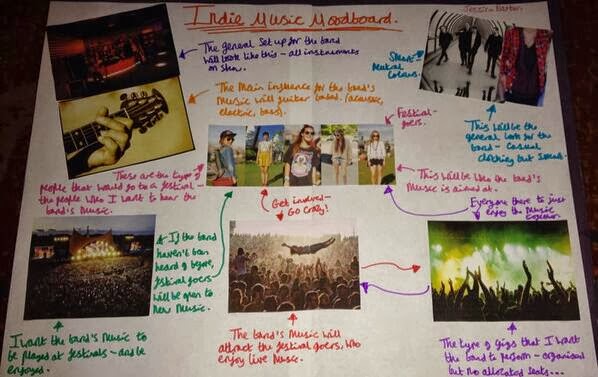 Indie Music Moodboard.
The general set up for the band
will look like this - all instruments
on show.
The Main influence for the band's
Music will guitar based. (acoustic,
electric, bass).
Smart!
Neutral
Colours.
This will be the
general look for the
band - Casual
clothing but smart.
Festival-
goers.
These are the type of
people that would go to a festival -
the people who I want to hear the
band's music.
This will be who the band's
Music is aimed at.
Get involved -
Go Crazy!
Everyone there to just
enjoy the Music
together.
If the band
haven't been
heard of before,
festival goers
will be open to
new Music.
I want the band's Music to
be played at festivals - and be
enjoyed.
The band's Music will
attract the festival goers, who
enjoy live Music.
The type of gigs that I want
the band to perform - organised
but no allocated seats...